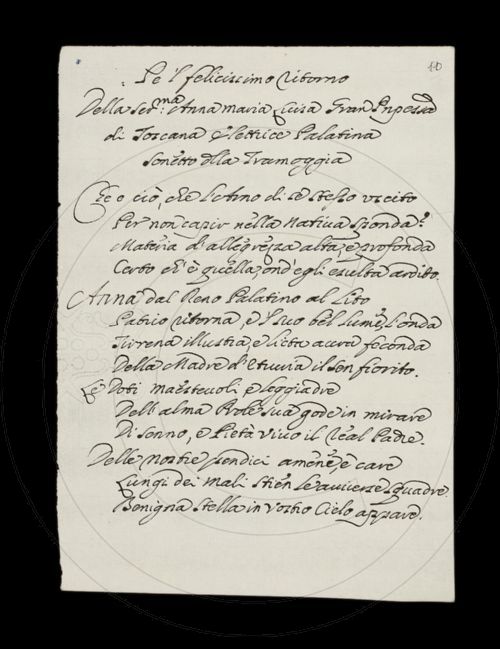 40
Pe 'l felicissimo ritorno
Della Ser.ma Anna Maria Luisa Gran Pnpessa
di Toscana Elettrice Palatina
Sonetto della Tramoggia
Che è ciò, che l'Arno di se stesso uscito
Per non capir nella nativa sponda?
Materia d'allegrezza alta, e profonda
Certo ch'è quella, ond'egli esulta ardito.
Anna dal Reno Palatino al Lito
Patrio ritorna, e 'l suo bel lume, l'onda
Tirrena illustra, e lieta a cura feconda
Della Madre d'Etruria il sen fiorito.
Le Doti maestevoli, e leggiadre
Dell'alma Prole sua gode in mirare
Di senno, e Pietà vivo il Real Padre.
Delle nostre pendici amene, e care
Lungi dei mali stien le avverse squadre
Benigna stella in vostro Cielo appare.